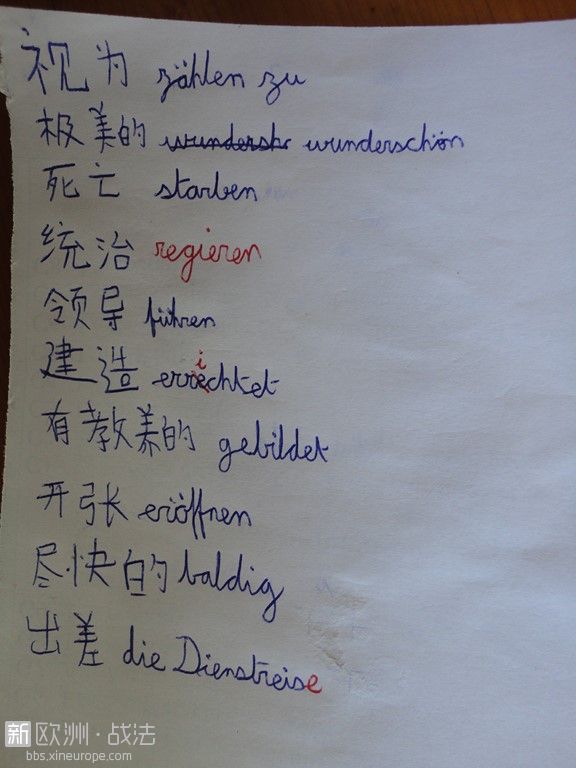 视为 zählen zu
极美的 wundersh wunderschön
死亡 starben
统治 regieren
领导 führen
建造 errichtet
有教养的 gebildet
开张 eröffnen
尽快的 baldig
出差 die Dienstreise
新欧洲·战法
bbs.xineurope.com